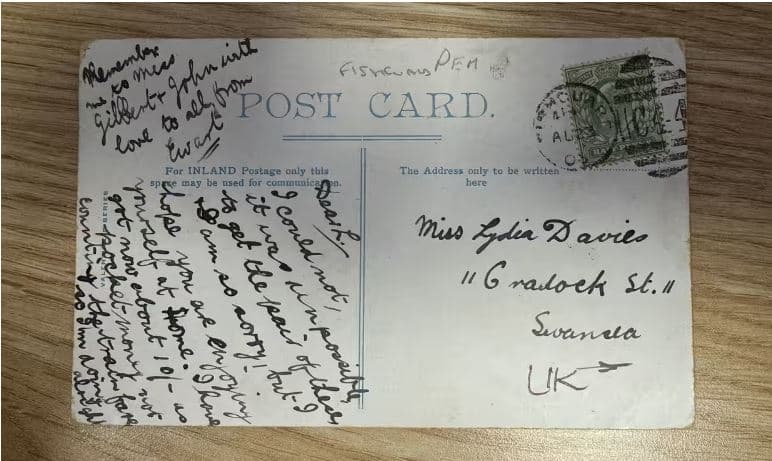 Remember
me to Miss
Gilbert & John with
love to all from
Ewart
FISHGUARD PEM
POST CARD.
For INLAND Postage only this
space may be used for communication.
The Address only to be written
here
Dear L/
I could not,
it was impossible
to get the pair of these
I am so sorry! but I
hope you are enjoying
yourself at home. I have
got now about 10/- as
pocket money not
counting the train fare
so I'm doing
alright
Miss Lydia Davies
11 Cradock St.
Swansea
UK
AU 23